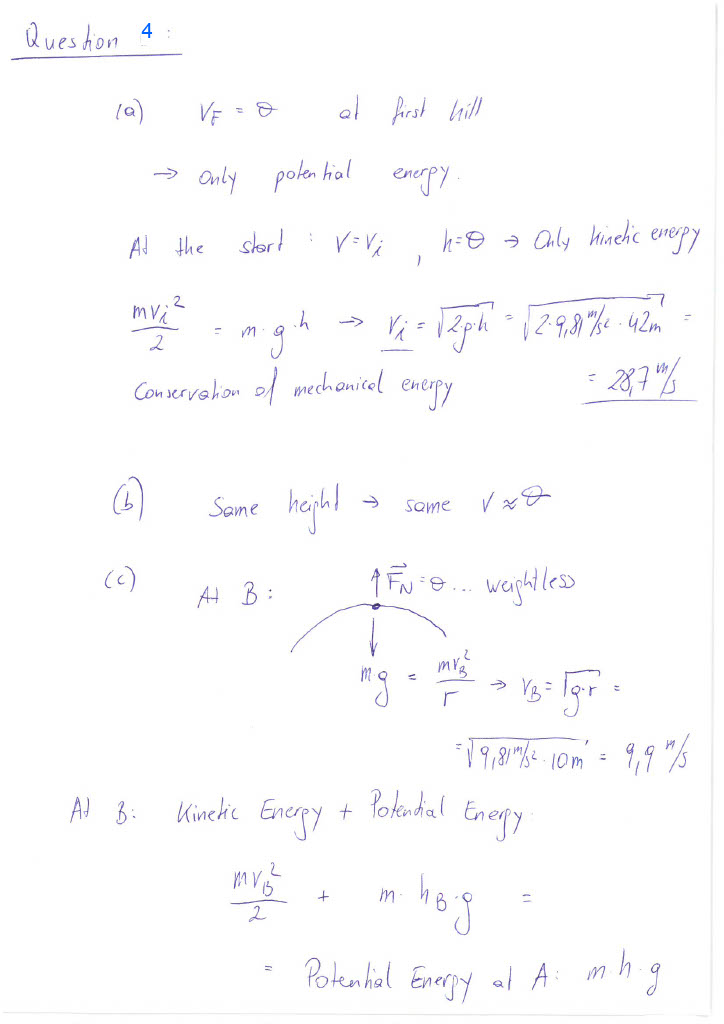 Question 4 :
(a) V_F = 0 at first hill
→ only potential energy.
At the start : V = V_i , h = 0 → Only kinetic energy
mv_i²/2 = m · g · h → V_i = √2·g·h = √2·9,81 m/s² · 42m =
Conservation of mechanical energy = 28,7 m/s
(b) Same height → same V ≈ 0
(c) At B : ↑ F⃗_N = 0 ... weightless
mg = mv_B²/r → V_B = √g·r =
= √9,81 m/s² · 10m = 9,9 m/s
At B : Kinetic Energy + Potential Energy
mv_B²/2 + m · h_B · g =
= Potential Energy at A : m · h · g